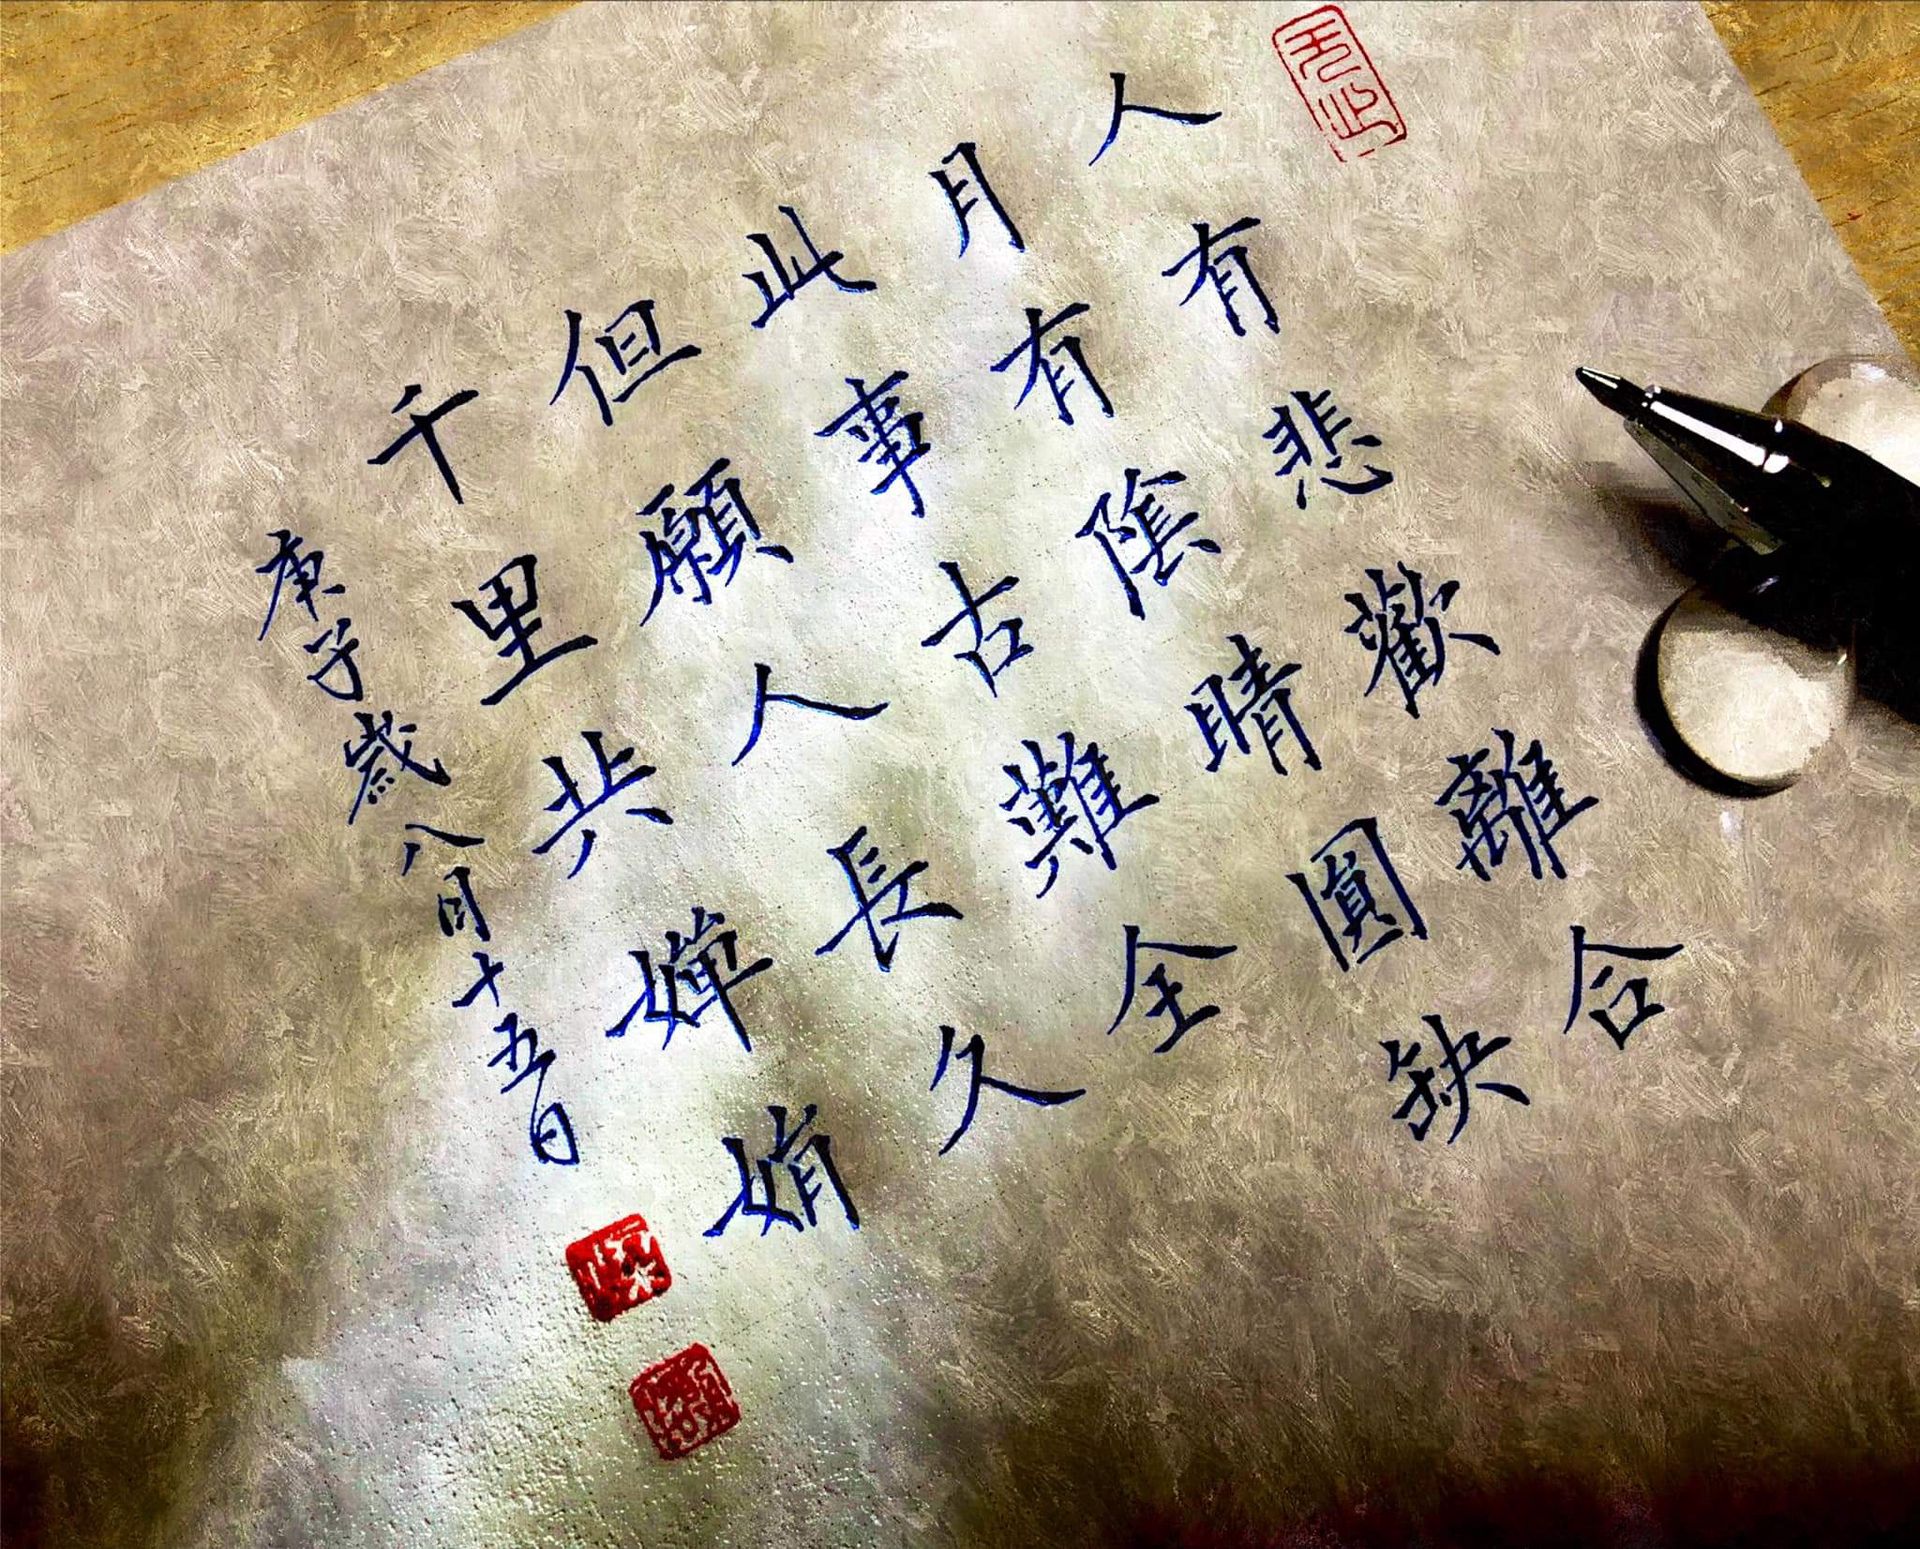 人有悲歡離合
月有陰晴圓缺
此事古難全
但願人長久
千里共嬋娟
庚子歲八月十五日